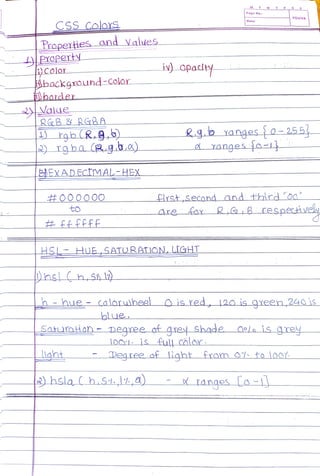 CSS Colors
Properties and values
1) Property
i) color iv) opacity
ii) background-color
iii) border
2) Value
RGB & RGBA
1) rgb (R,g,b) R,g,b ranges [0-255]
2) rgba (R,g,b,α) α ranges [0-1]
HEXADECIMAL-HEX
#000000 first, second and third "00"
to are for R,G,B respectively
# ffffff
HSL - HUE, SATURATION, LIGHT
1) hsl (h, s%, l%)
h - hue - colorwheel 0 is red, 120 is green, 240 is
blue.
Saturation - Degree of grey shade 0% is grey
100% is full color.
light - Degree of light from 0% to 100%
2) hsla (h, s%, l%, a) - α ranges [0-1]